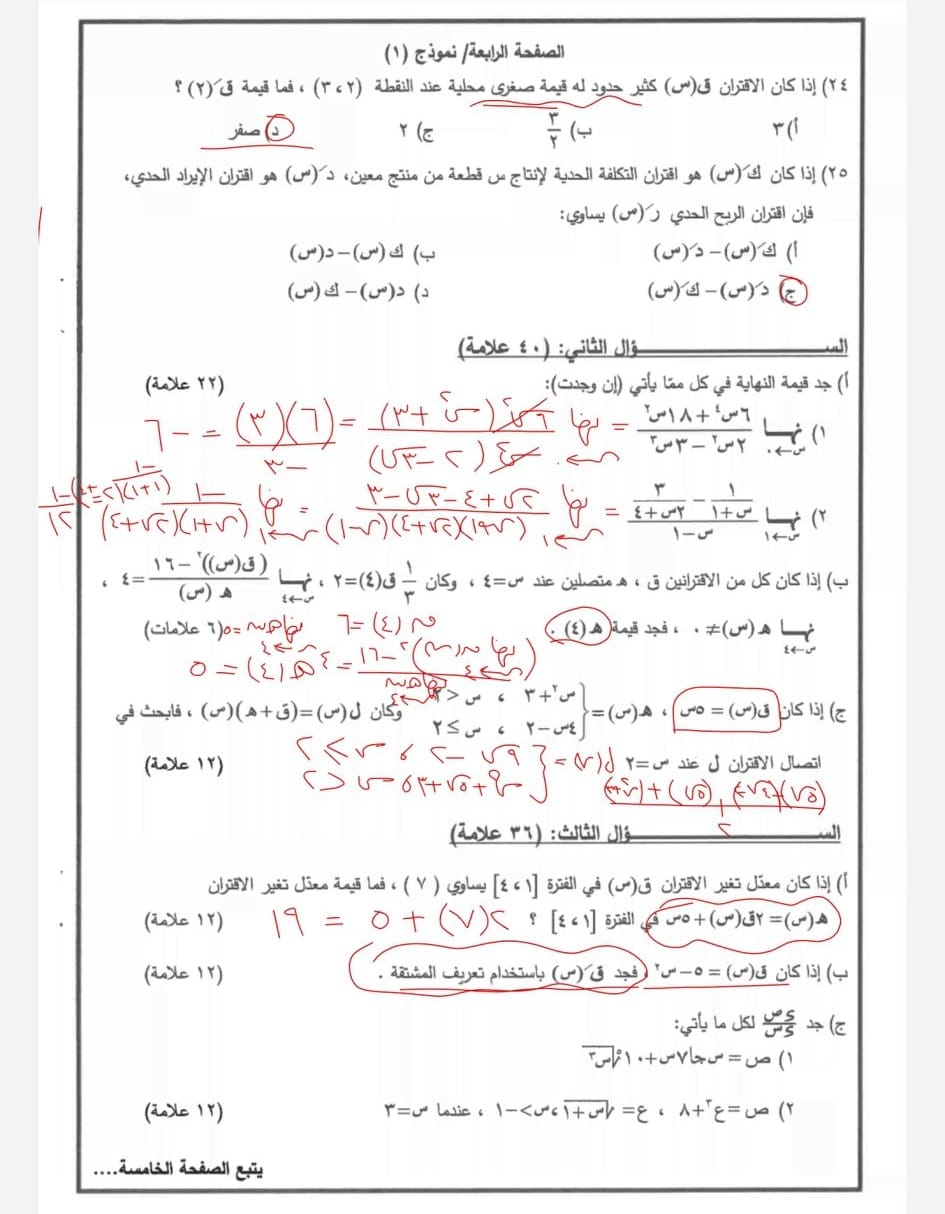 الصفحة الرابعة/ نموذج (١)
٢٤) إذا كان الاقتران ق(س) كثير حدود له قيمة صغرى محلية عند النقطة (٢ ، ٣) ، فما قيمة قَ(٢) ؟
أ) ٣ ب) ٣/٢ ج) ٢ د) صفر
٢٥) إذا كان كَ(س) هو اقتران التكلفة الحدية لإنتاج س قطعة من منتج معين، دَ(س) هو اقتران الإيراد الحدي،
فإن اقتران الربح الحدي رَ(س) يساوي:
أ) كَ(س) – دَ(س) ب) ك(س) – د(س)
ج) دَ(س) – كَ(س) د) د(س) – ك(س)
الســـؤال الثاني: (٤٠ علامة)
أ) جد قيمة النهاية في كل ممّا يأتي (إن وجدت): (٢٢ علامة)
١) نهــا س←٠ (٦س٤ + ١٨س٢)/(٢س٢ – ٣س٣) = (٦)(٣)/٣- = -٦
٢) نهــا س←١ (١/(س+١) – ٣/(٢س+٤))/(س–١) = نها (٢س+٤-٣س-٣)/((س+١)(٢س+٤)(س-١)) = نها
ب) إذا كان كل من الاقترانين ق ، هـ متصلين عند س=٤ ، وكان ١/٣ ق(٤)=٢ ، نهــا س←٤ ((ق(س))٢ – ١٦)/هـ(س) = ٤ ،
نهــا س←٤ هـ(س) ≠ ٠ ، فجد قيمة هـ(٤) . (٦ علامات)
هـ(٤) = ٥
ج) إذا كان ق(س) = ٥س ، هـ(س) = { س٢+٣ ، س < ٢
٤س–٢ ، س ≥ ٢ وكان ل(س)=(ق+هـ)(س) ، فابحث في
اتصال الاقتران ل عند س=٢ (١٢ علامة)
ل(س) = { ٩س - ٢ ، س ≥ ٢
س٢+٥س+٣ ، س < ٢
الســـؤال الثالث: (٣٦ علامة)
أ) إذا كان معدّل تغير الاقتران ق(س) في الفترة [١ ، ٤] يساوي (٧) ، فما قيمة معدّل تغير الاقتران
هـ(س)= ٢ق(س)+٥س في الفترة [١ ، ٤] ؟ ٢(٧) + ٥ = ١٩ (١٢ علامة)
ب) إذا كان ق(س) = ٥–س٢ فجد قَ(س) باستخدام تعريف المشتقة . (١٢ علامة)
ج) جد ءص/ءس لكل ما يأتي:
١) ص = س جا٧س + ١٠√س٣
٢) ص = ع٣+٨ ، ع = √(س+١) ، س>–١ ، عندما س=٣ (١٢ علامة)
يتبع الصفحة الخامسة....